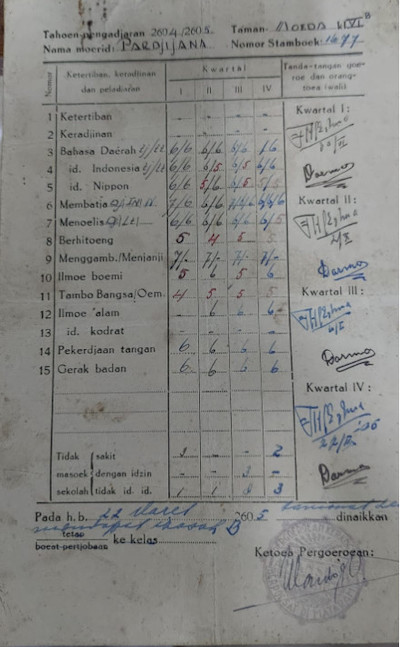 B
Tahoen pengadjaran 2604/2605. Taman- MOEDA
Nama moerid: PARDJIJANA Nomor Stamboek: 1677
Nomor Ketertiban, keradjinan dan peladjaran Kwartal Tanda-tangan goeroe dan orangtoea (wali)
I II III IV
1 Ketertiban - - - - Kwartal I:
2 Keradjinan - - - -
3 Bahasa Daérah 6/6 6/6 6/6 6/6
4 id. Indonesia 6/6 6/5 6/5 6/6 Darmo
5 id. Nippon 6/6 5/6 6/5 5/5
6 Membatja 7/6 6/6 Kwartal II:
7 Menoelis 6/6 6/6 6/6 6/5
8 Berhitoeng 5 4 5 5
9 Menggamb./Menjanji 7/- 7/- 7/- 7/- Darmo
10 Ilmoe boemi 5 6 5 6
11 Tambo Bangsa/Oem. 4 5 5 5 Kwartal III:
12 Ilmoe 'alam - 6 6 6
13 id. kodrat - - - -
14 Pekerdjaan tangan 6 6 6 6 Darmo
15 Gerak badan 6 6 6 6
Kwartal IV:
Tidak masoek sekolah
sakit 1 - - 2
dengan idzin - - 3 -
tidak id. id. 1 1 3 Darmo
Pada h.b. 22 Maret 2605 dinaikkan
mendapat idzazah B
tetap
boeat pertjobaan ke kelas
Ketoea Pergoeroean: